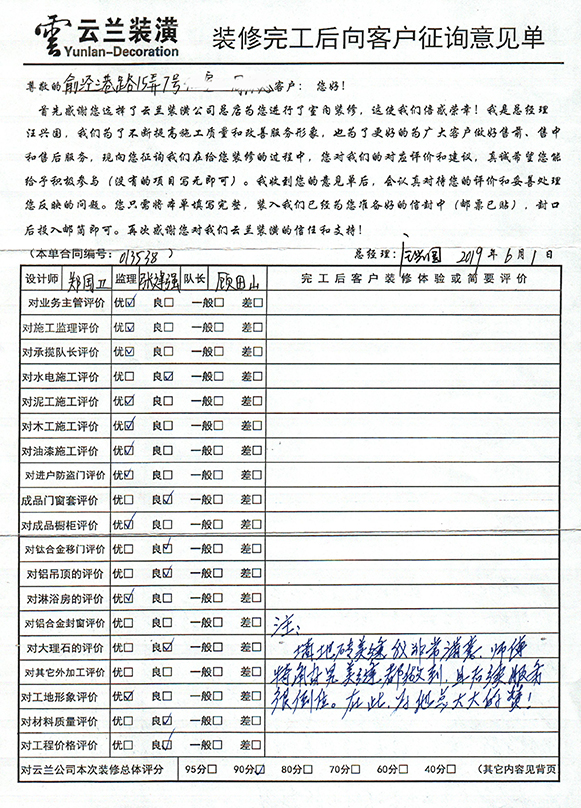 雲 云兰装潢
Yunlan-Decoration
装修完工后向客户征询意见单
尊敬的俞泾港路15弄7号 客户：您好！
首先感谢您选择了云兰装潢公司总店为您进行了室内装修，这使我们倍感荣幸！我是总经理
汪兴国，我们为了不断提高施工质量和改善服务形象，也为了更好的为广大客户做好售前、售中
和售后服务，现向您征询我们在给您装修的过程中，您对我们的对应评价和建议，真诚希望您能
给予积极参与（没有的项目写无即可）。我收到您的意见单后，会认真对待您的评价和妥善处理
您反映的问题。您只需将本单填写完整，装入我们已经为您准备好的信封中（邮票已贴），封口
后投入邮筒即可。再次感谢您对我们云兰装潢的信任和支持！
（本单合同编号：013538） 总经理：汪兴国 2019年6月1日
设计师 郑国卫 监理 张建强 队长 顾田山 完工后客户装修体验或简要评价
对业务主管评价 优☑ 良□ 一般□ 差□
对施工监理评价 优☑ 良□ 一般□ 差□
对承揽队长评价 优☑ 良□ 一般□ 差□
对水电施工评价 优□ 良☑ 一般□ 差□
对泥工施工评价 优☑ 良□ 一般□ 差□
对木工施工评价 优☑ 良□ 一般□ 差□
对油漆施工评价 优☑ 良□ 一般□ 差□
对进户防盗门评价 优☑ 良□ 一般□ 差□
成品门窗套评价 优□ 良☑ 一般□ 差□
对成品橱柜评价 优☑ 良□ 一般□ 差□
对钛合金移门评价 优□ 良☑ 一般□ 差□
对铝吊顶的评价 优□ 良☑ 一般□ 差□
对淋浴房的评价 优☑ 良□ 一般□ 差□
对铝合金封窗评价 优□ 良□ 一般□ 差□
注：
对大理石的评价 优□ 良☑ 一般□ 差□
墙地砖美缝 非常满意 师傅
对其它外加工评价 优□ 良□ 一般□ 差□
美缝都做到，且后续服务
对工地形象评价 优☑ 良□ 一般□ 差□
很到位。在此，为他点大大的赞！
对材料质量评价 优□ 良☑ 一般□ 差□
对工程价格评价 优□ 良☑ 一般□ 差□
对云兰公司本次装修总体评分 95分□ 90分☑ 80分□ 70分□ 60分□ 40分□ （其它内容见背页